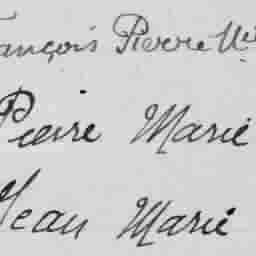 François Pierre M
Pierre Marie
Jean Marie